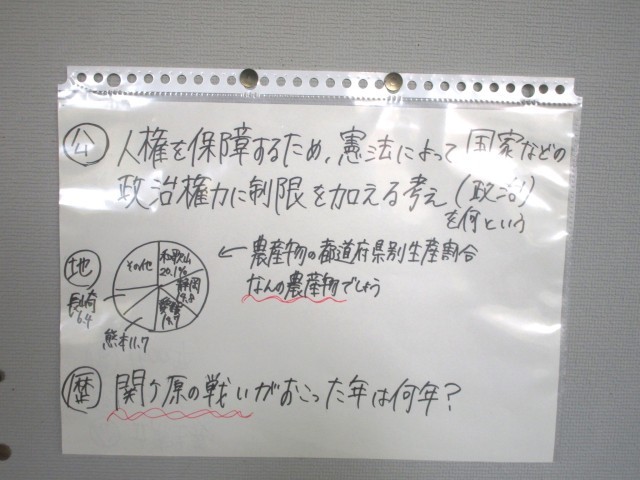 公 人権を保障するため、憲法によって国家などの
政治権力に制限を加える考え(政治)
を何という
地
その他
和歌山
20.1%
静岡
愛媛
長崎
6.4
熊本11.7
←農産物の都道府県別生産割合
なんの農産物でしょう
歴 関ヶ原の戦いがおこった年は何年?